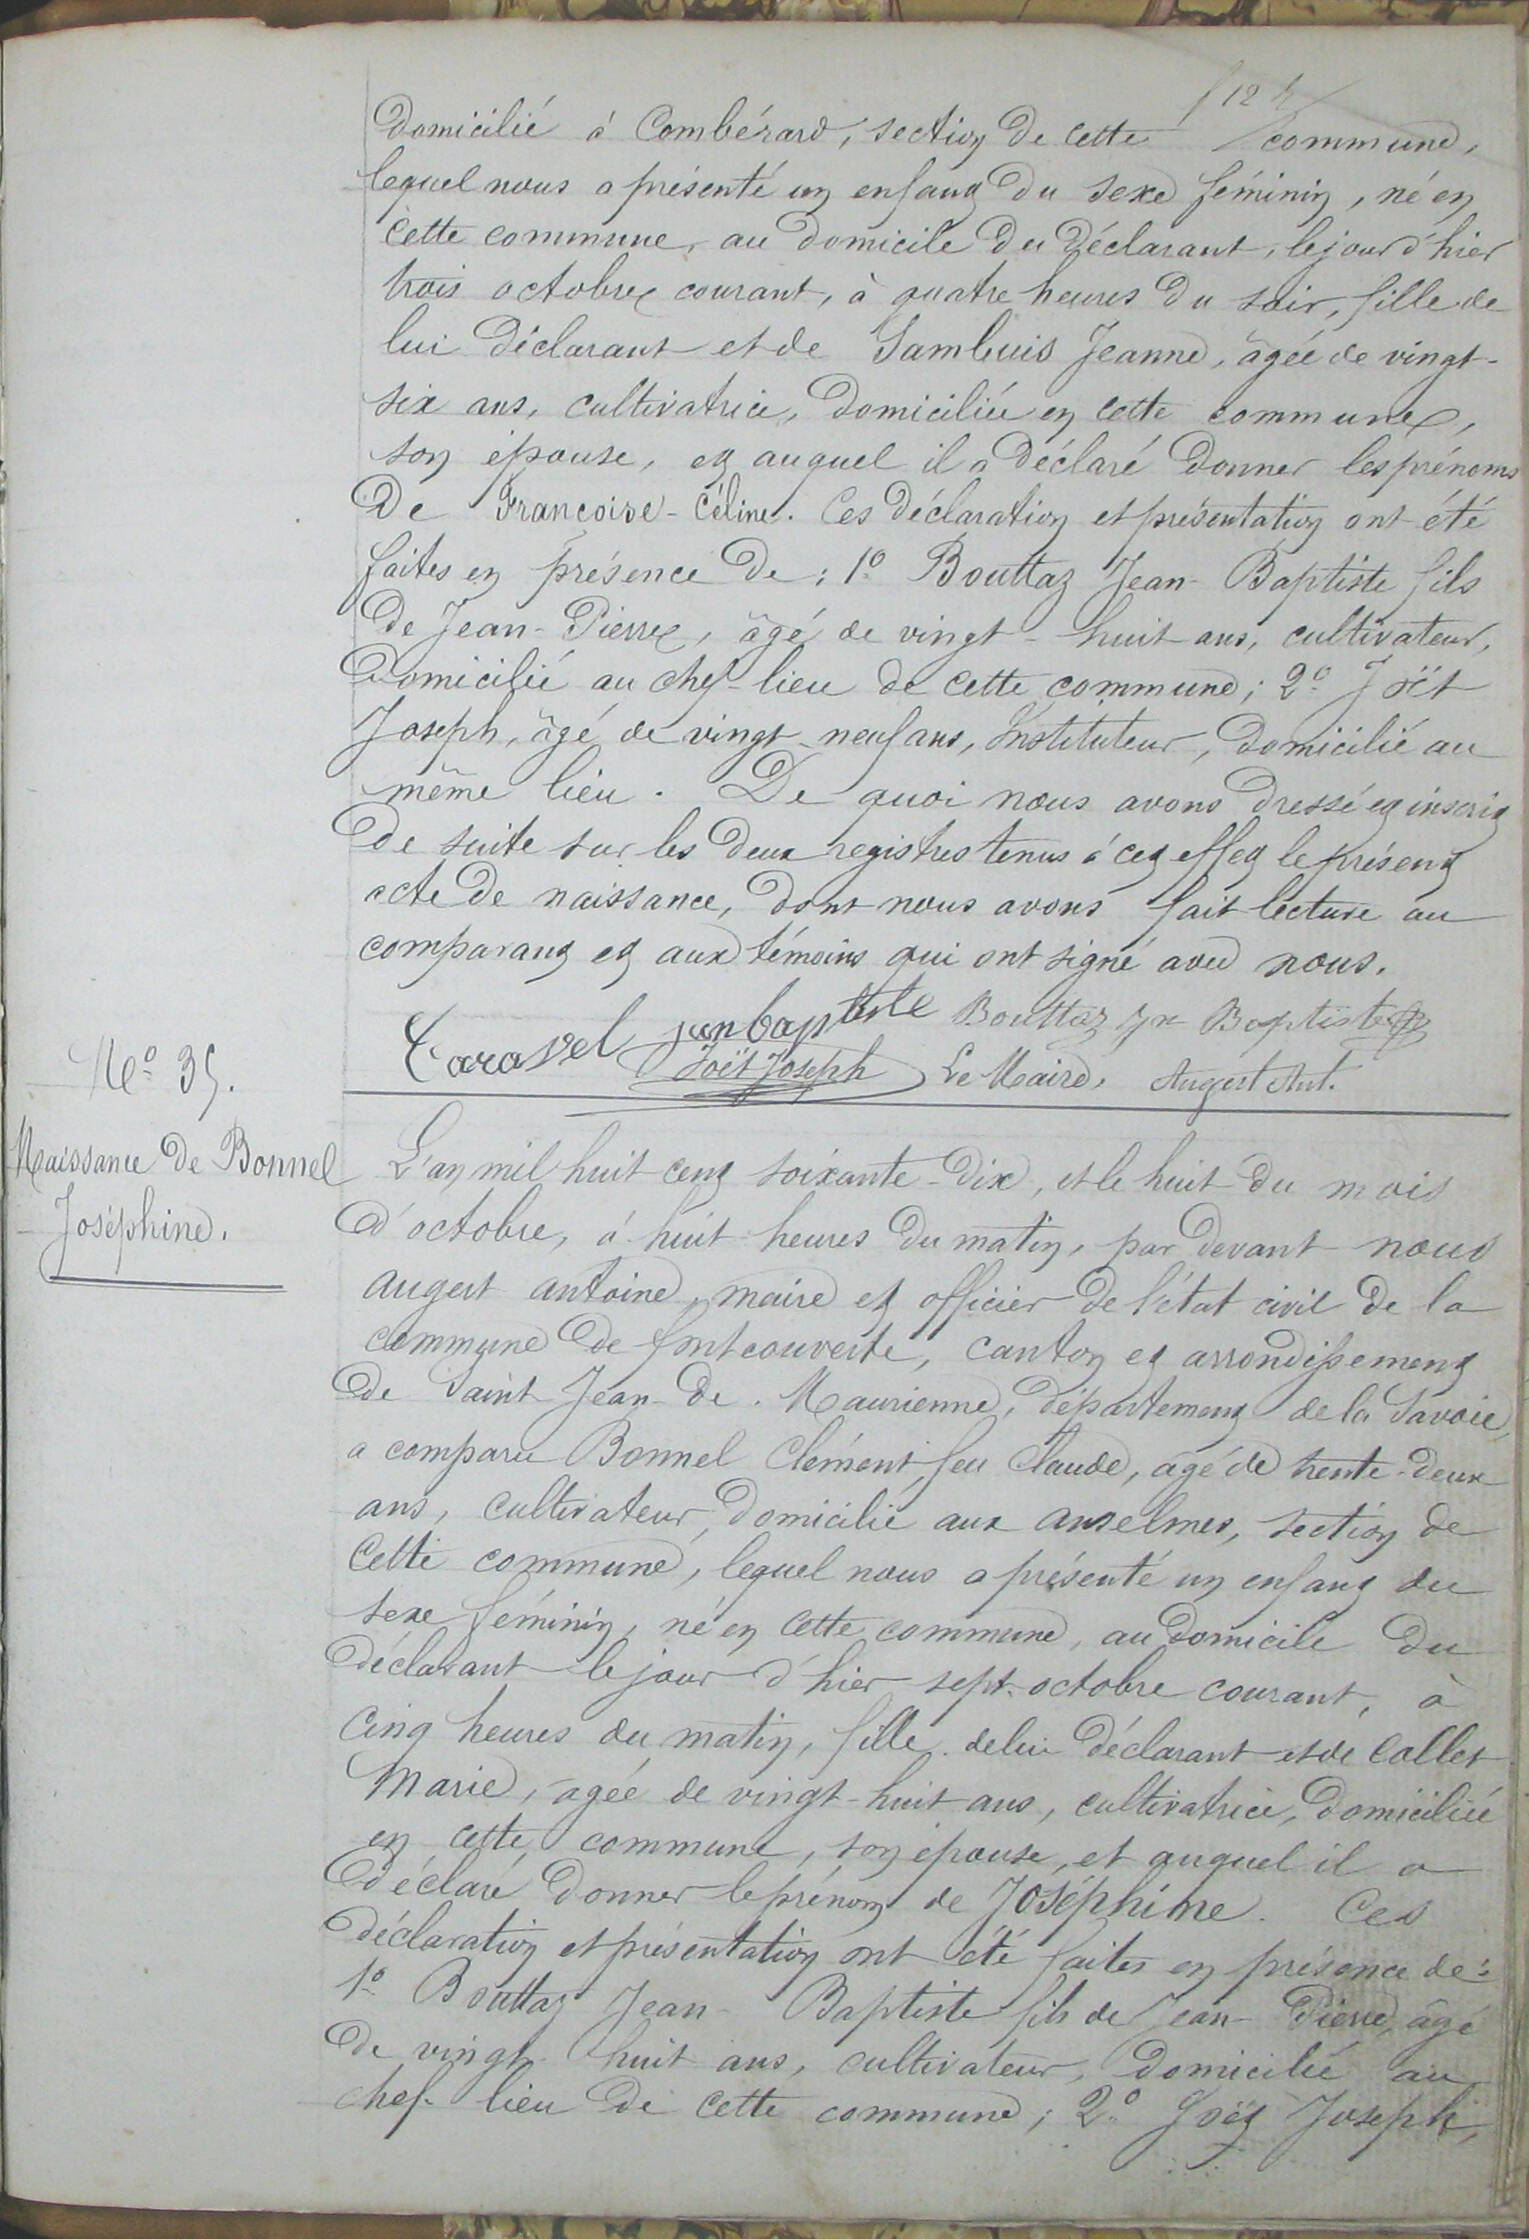 domicilié à Combérard, section de cette commune,
lequel nous a présenté un enfant du sexe féminin, né en
cette commune, au domicile du déclarant, le jour d'hier
trois octobre courant, à quatre heures du soir, fille de
lui déclarant et de Sambuis Jeanne, âgée de vingt-
six ans, cultivatrice, domiciliée en cette commune,
son épouse, et auquel il a déclaré donner les prénoms
de Francoise-Céline. Ces déclaration et présentation ont été
faites en présence de : 1º Bouttaz Jean-Baptiste fils
de Jean-Pierre, âgé de vingt-huit ans, cultivateur,
domicilié au chef-lieu de cette commune; 2º Joët
Joseph, âgé de vingt-neuf ans, Instituteur, domicilié au
même lieu. De quoi nous avons dressé et inscrit
de suite sur les deux registres tenus à cet effet le présent
acte de naissance, dont nous avons fait lecture au
comparant et aux témoins qui ont signé avec nous.
Caravel jan baptiste Bouttaz Jn Baptiste
Joët Joseph Le Maire, Augert Ant.
Nº 35.
Naissance de Bonnel
Joséphine.
L'an mil huit cent soixante-dix, et le huit du mois
d'octobre, à huit heures du matin, par devant nous
augert antoine, maire et officier de l'état civil de la
commune de fontcouverte, canton et arrondissement
de Saint-Jean-de-Maurienne, département de la Savoie,
a comparu Bonnel Clément feu Claude, âgé de trente-deux
ans, cultivateur, domicilié aux anselmes, section de
cette commune, lequel nous a présenté un enfant du
sexe féminin, né en cette commune, au domicile du
déclarant le jour d'hier sept octobre courant, à
cinq heures du matin, fille de lui déclarant et de Collet
Marie, âgée de vingt-huit ans, cultivatrice, domiciliée
en cette commune, son épouse, et auquel il a
déclaré donner le prénom de Joséphine. Ces
déclaration et présentation ont été faites en présence de :
1º Bouttaz Jean-Baptiste fils de Jean-Pierre, âgé
de vingt-huit ans, cultivateur, domicilié au
chef-lieu de cette commune; 2º Joët Joseph,